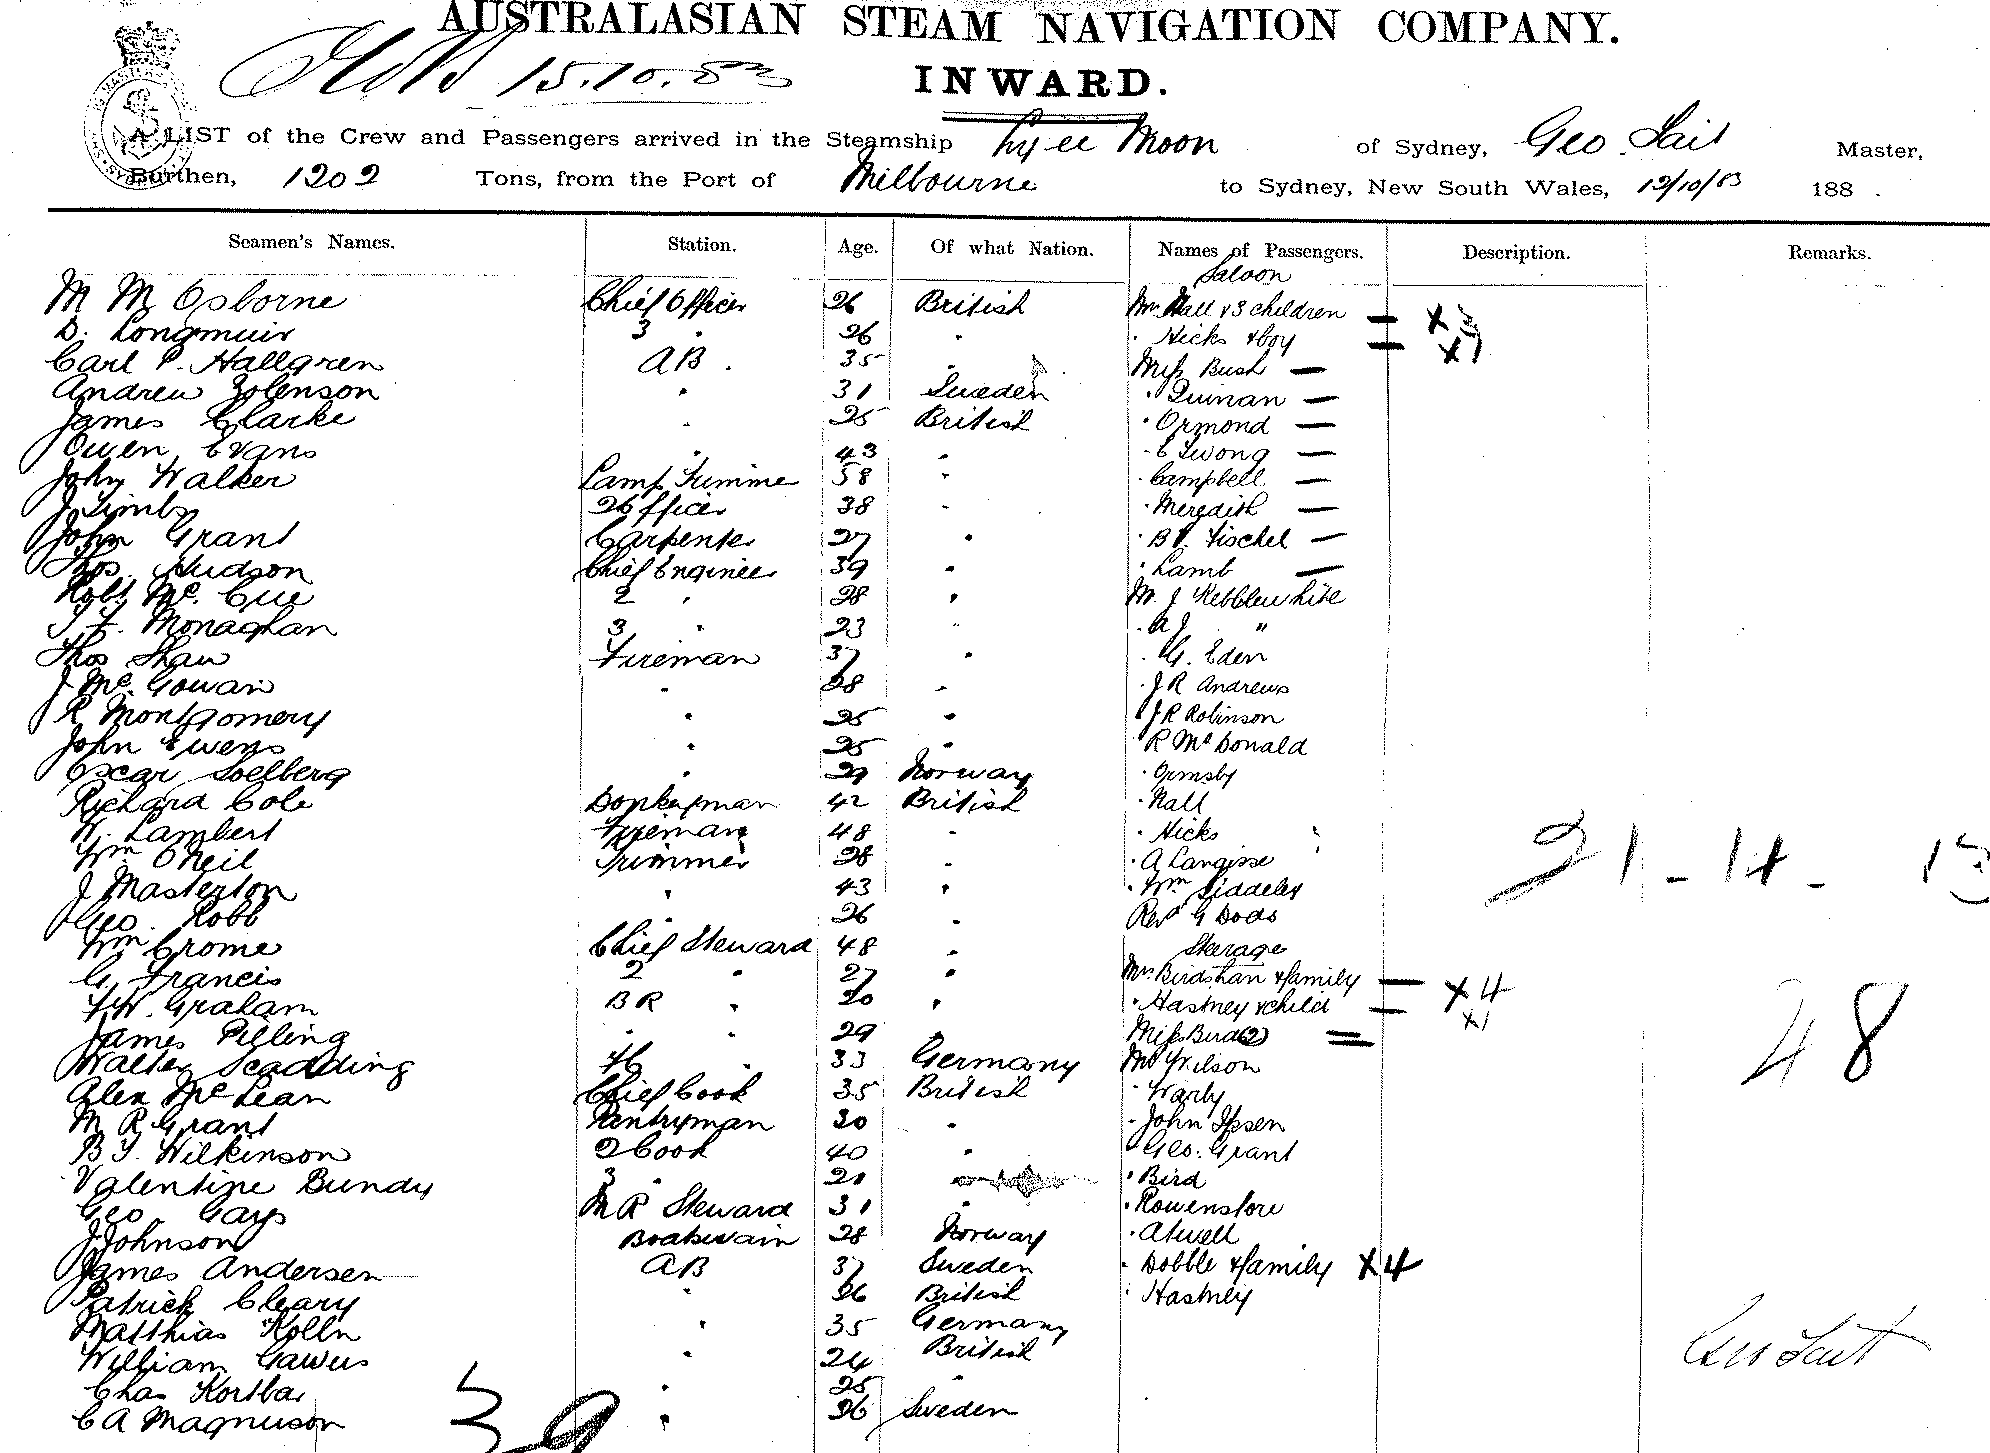 AUSTRALASIAN STEAM NAVIGATION COMPANY.
15.10.83
INWARD.
A LIST of the Crew and Passengers arrived in the Steamship Ly ee Moon of Sydney, Geo. Tait Master,
Burthen, 1202 Tons, from the Port of Melbourne to Sydney, New South Wales, 12/10/83 188 .
Seamen's Names. Station. Age. Of what Nation. Names of Passengers. Description. Remarks.
Saloon
M M Osborne Chief Officer 26 British Mrs Hall & 3 children — X 3
D. Longmuir 3 " 26 " " Hicks & boy — X 1
Carl P. Hallgren AB . 35 " Miss Bush —
Andrew Zolenson " 31 Sweden " Quinan —
James Clarke " 25 British " Ormond —
Owen Evans " 43 " " E Twong —
John Walker Lamp Trimme 58 " " Campbell —
J Timby 2 Officer 38 " " Meredith —
John Grant Carpenter 27 " " B V. Fischel —
Thos. Hudson Chief Engineer 39 " " Lamb —
Robt Mc. Cue 2 " 28 " M. J Kebblewhite
T F. Monaghan 3 " 23 " " A J "
Thos Shaw Fireman 37 " " G. Eden
J Mc. Gowan " 28 " " J R Andrews
R Montgomery " 25 " " J R Robinson
John Ewens " 25 " " R Mc Donald
Oscar Soelberg " 29 Norway " Ormsby
Richard Cole Donkeyman 42 British " Hall
W. Lambert Fireman 48 " " Hicks
Wm O'Neil Trimmer 28 " " A Langisse
J Masterton " 43 " " Wm Siddeley
21 - 14 - 13
Geo. Robb " 26 " Revd G Dods
Wm Crome Chief Steward 48 " Steerage
G. Francis 2 " 27 " Mrs Birdshan & family — X 4
F.W. Graham BR " 20 " " Hastney & child — X1
James Pilling " " 29 " Miss Bird (2) =
48
Walter Scadding " 33 Germany Mr Wilson
Alex Mc Lean Chief Cook 35 British " Warly
M R Grant Pantryman 30 " " John Ipsen
B T. Wilkinson 2 Cook 40 " " Geo. Grant
Valentine Bundy 3 " 21 " " Bird
Geo Gays M R Steward 31 " " Rowenstore
J Johnson Boatswain 28 Norway " Atwell
James Andersen AB 37 Sweden " Dobble & family X4
Patrick Cleary " 26 British " Hastney
Matthias Kolln " 35 Germany
William Gawus " 24 British
Geo Tait
Chas Kortbar " 25 "
C A Magnuson " 26 Sweden
39